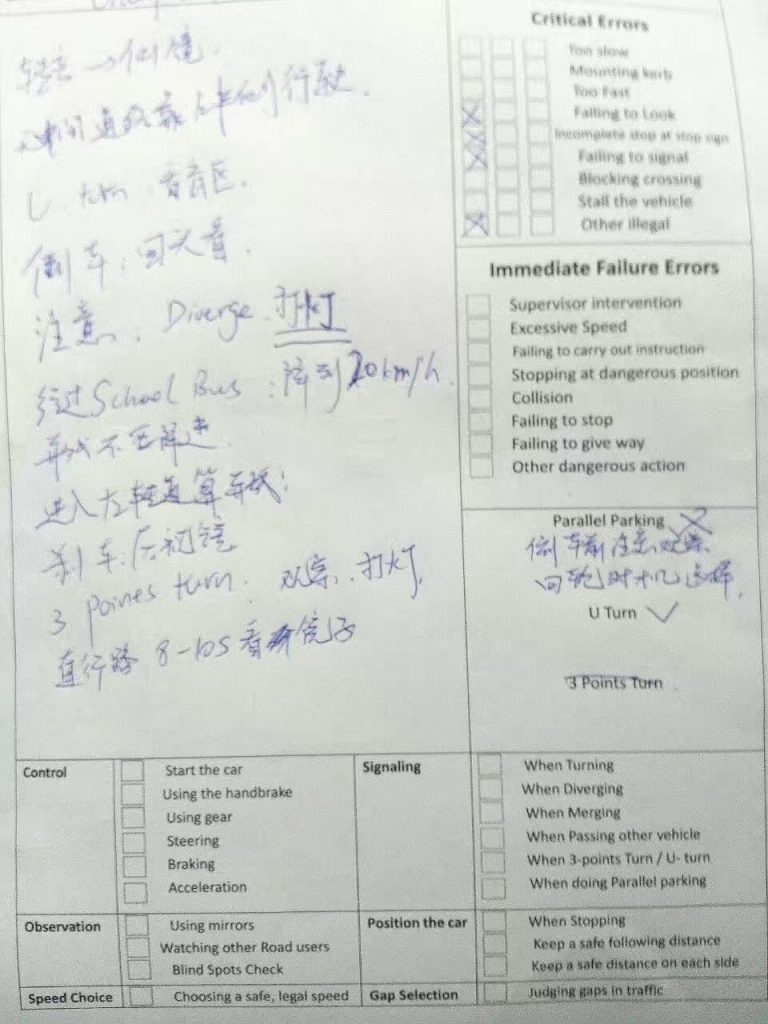 倒镜.
靠左侧行驶.
U turn 看盲区.
倒车: 回头看.
注意: Diverge 打灯
经过 School Bus : 降到 20km/h.
并线不
进入左转道
刹车: 后视镜
3 Points turn: 观察. 打灯.
直行路 8-10s 看镜子
Critical Errors
Too slow
Mounting kerb
Too Fast
Failing to Look
Incomplete stop at stop sign
Failing to signal
Blocking crossing
Stall the vehicle
Other illegal
Immediate Failure Errors
Supervisor intervention
Excessive Speed
Failing to carry out instruction
Stopping at dangerous position
Collision
Failing to stop
Failing to give way
Other dangerous action
Parallel Parking
倒车前注意观察
回轮时机选择.
U Turn ✓
3 Points Turn
Control
Start the car
Using the handbrake
Using gear
Steering
Braking
Acceleration
Signaling
When Turning
When Diverging
When Merging
When Passing other vehicle
When 3-points Turn / U- turn
When doing Parallel parking
Observation
Using mirrors
Watching other Road users
Blind Spots Check
Position the car
When Stopping
Keep a safe following distance
Keep a safe distance on each side
Speed Choice
Choosing a safe, legal speed
Gap Selection
Judging gaps in traffic